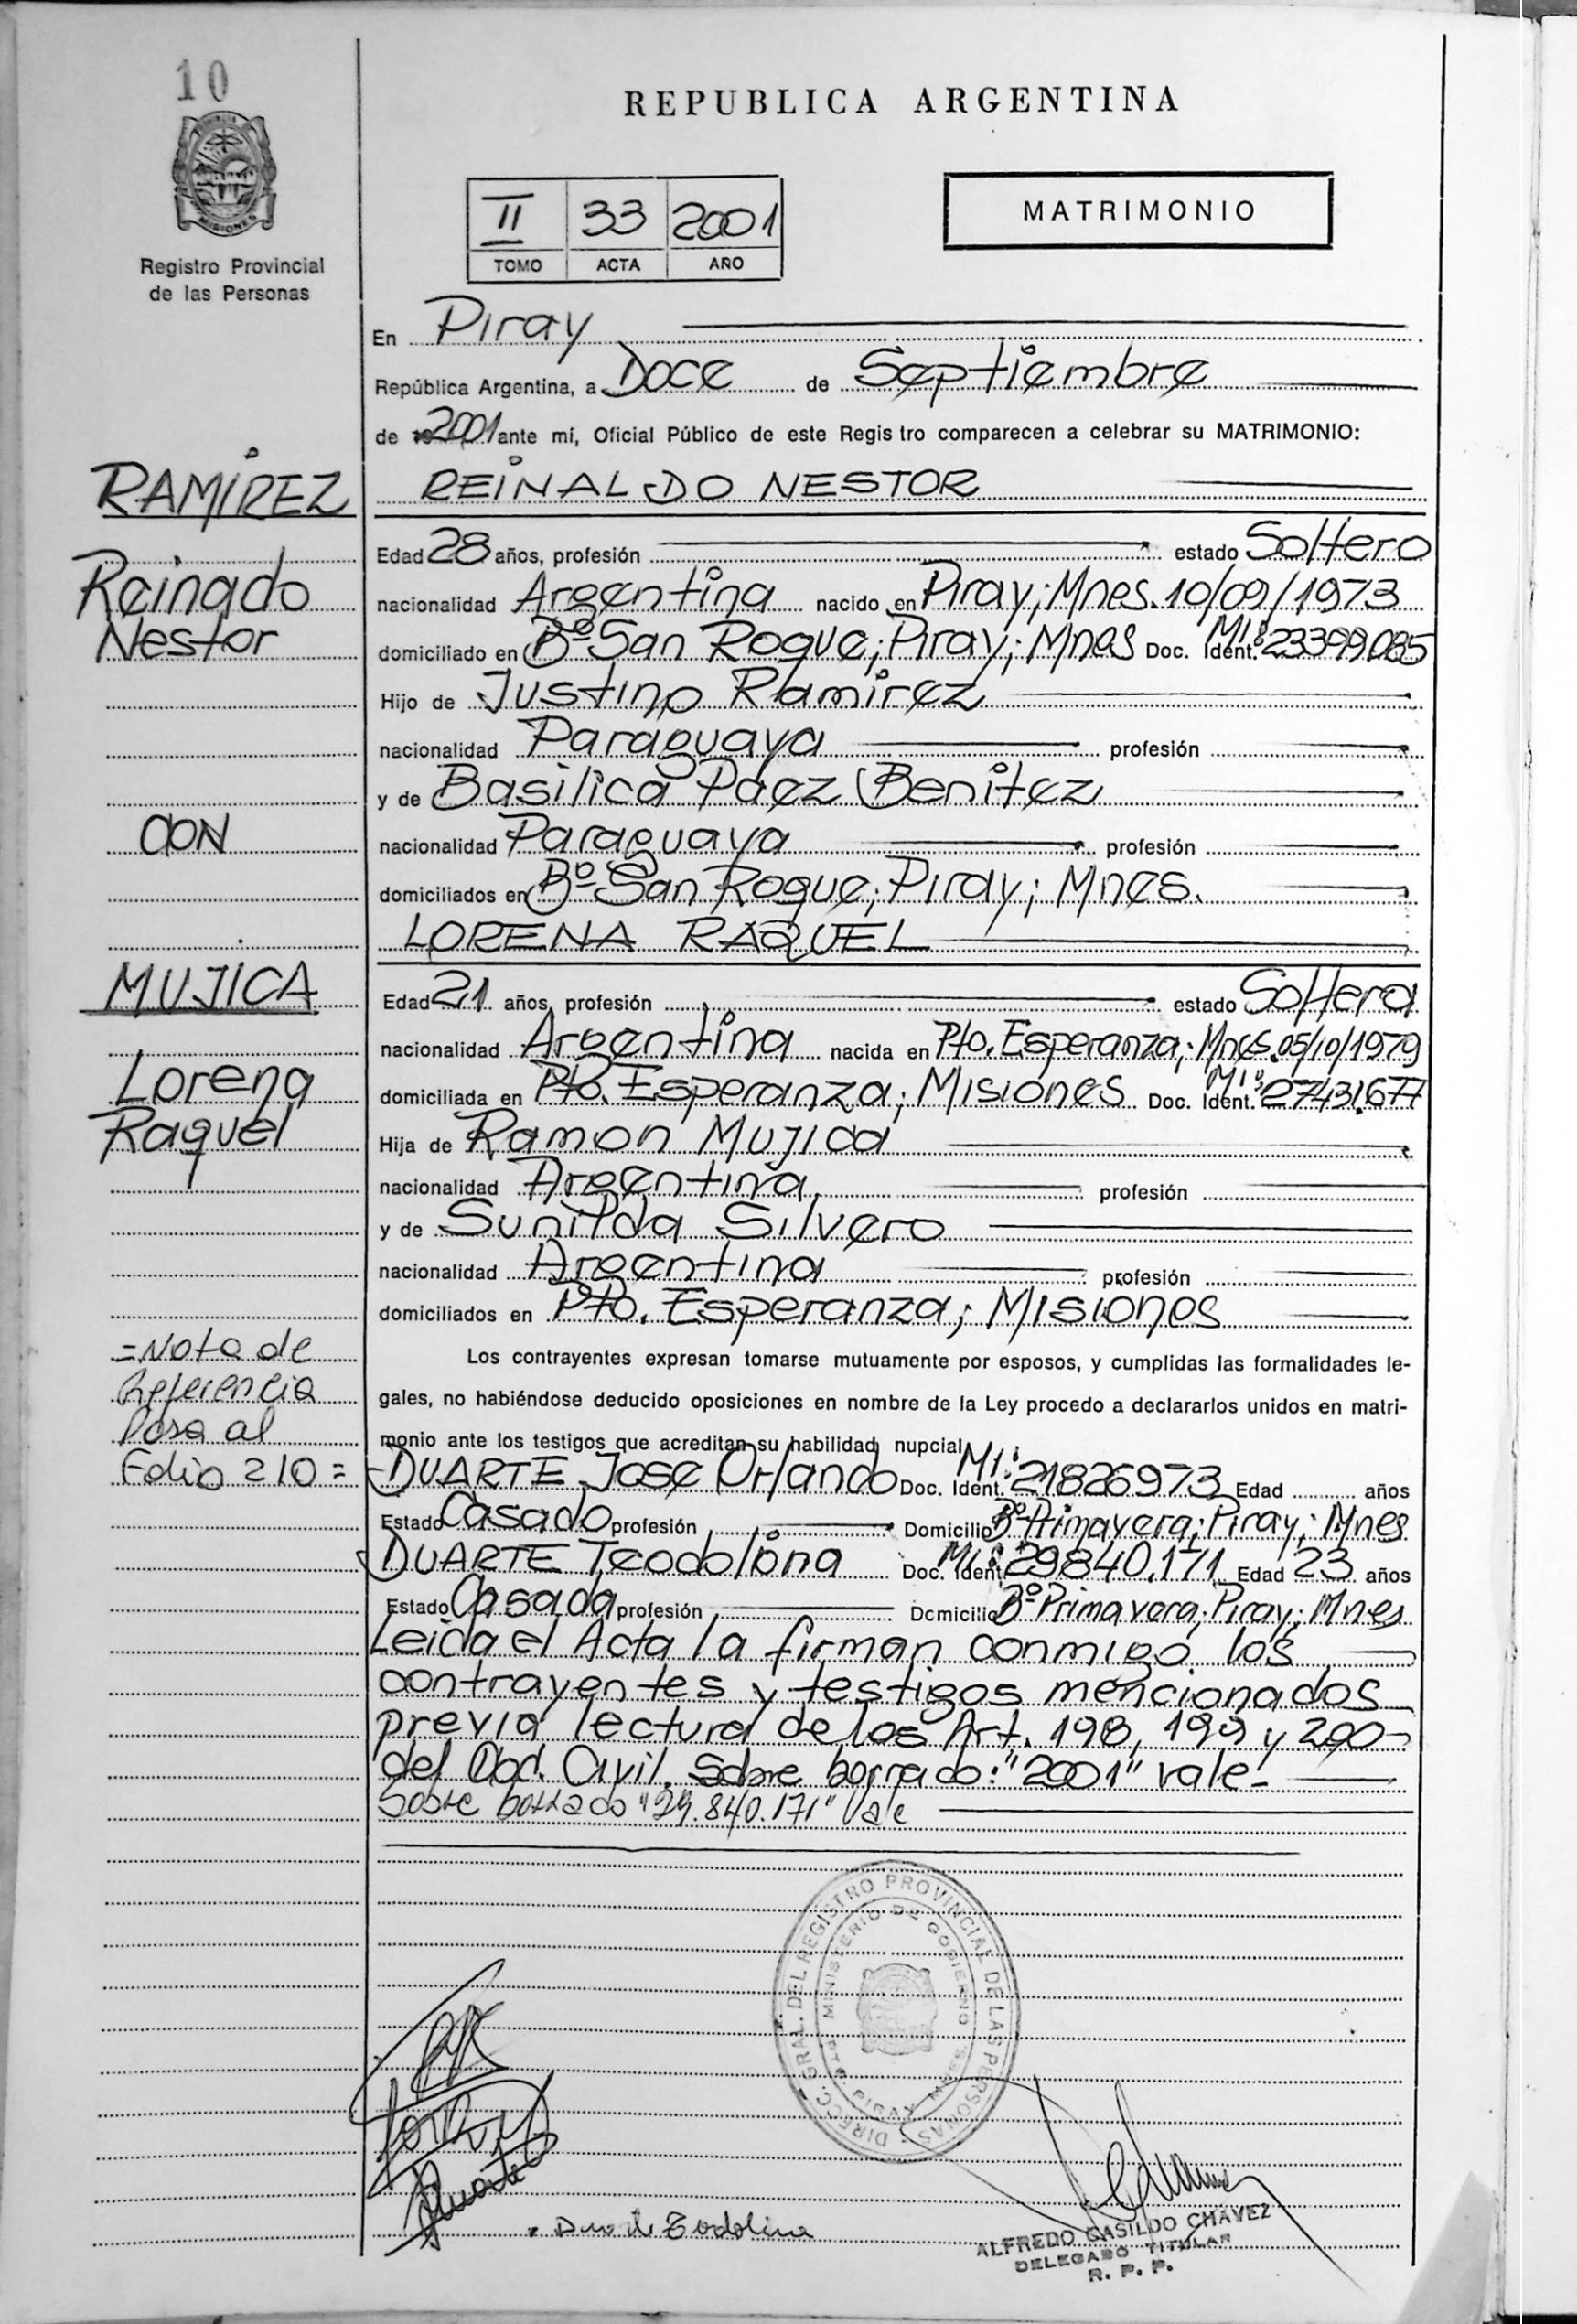 10
PROVINCIA DE
MISIONES
Registro Provincial
de las Personas
REPUBLICA ARGENTINA
II 33 2001
TOMO ACTA AÑO
MATRIMONIO
En Piray
República Argentina, a Doce de Septiembre
de 2001 ante mí, Oficial Público de este Regis tro comparecen a celebrar su MATRIMONIO:
RAMÍREZ
REINALDO NESTOR
Edad 28 años, profesión estado Soltero
Reinado
nacionalidad Argentina nacido en Piray; Mnes. 10/09/1973
Nestor
domiciliado en Bº San Roque; Piray; Mnes Doc. Ident. MI: 23399.085
Hijo de Justino Ramirez
nacionalidad Paraguaya profesión
y de Basilica Paez Benitez
CON
nacionalidad Paraguaya profesión
domiciliados en Bº San Roque; Piray; Mnes.
LORENA RAQUEL
MUJICA
Edad 21 años, profesión estado Soltera
nacionalidad Argentina nacida en Pto. Esperanza; Mnes. 05/10/1979
Lorena
domiciliada en Pto. Esperanza; Misiones Doc. Ident. MI: 27431.677
Raquel
Hija de Ramon Mujica
nacionalidad Argentina profesión
y de Sunilda Silvero
nacionalidad Argentina profesión
domiciliados en Pto. Esperanza; Misiones
=Nota de
Referencia
Pasa al
Folio 210=
Los contrayentes expresan tomarse mutuamente por esposos, y cumplidas las formalidades le-
gales, no habiéndose deducido oposiciones en nombre de la Ley procedo a declararlos unidos en matri-
monio ante los testigos que acreditan su habilidad nupcial
DUARTE Jose Orlando Doc. Ident. MI: 21826973 Edad años
Estado Casado profesión Domicilio Bº Primavera; Piray; Mnes
DUARTE Teodolina Doc. Ident MI: 29840.171 Edad 23 años
Estado Casada profesión Domicilio Bº Primavera; Piray; Mnes
Leida el Acta la firman conmigo los
contrayentes y testigos mencionados
previa lectura de los Art. 198, 199 y 200
del Cod. Civil. Sobre borrado: "2001" vale-
Sobre borrado "29.840.171" Vale
DIRECC. GRAL. DEL REGISTRO PROVINCIAL DE LAS PERSONAS
MINISTERIO DE GOBIERNO
PTO. PIRAY MNES.
Duarte
Teodolina
ALFREDO CASILDO CHAVEZ
DELEGADO TITULAR
R. P. P.